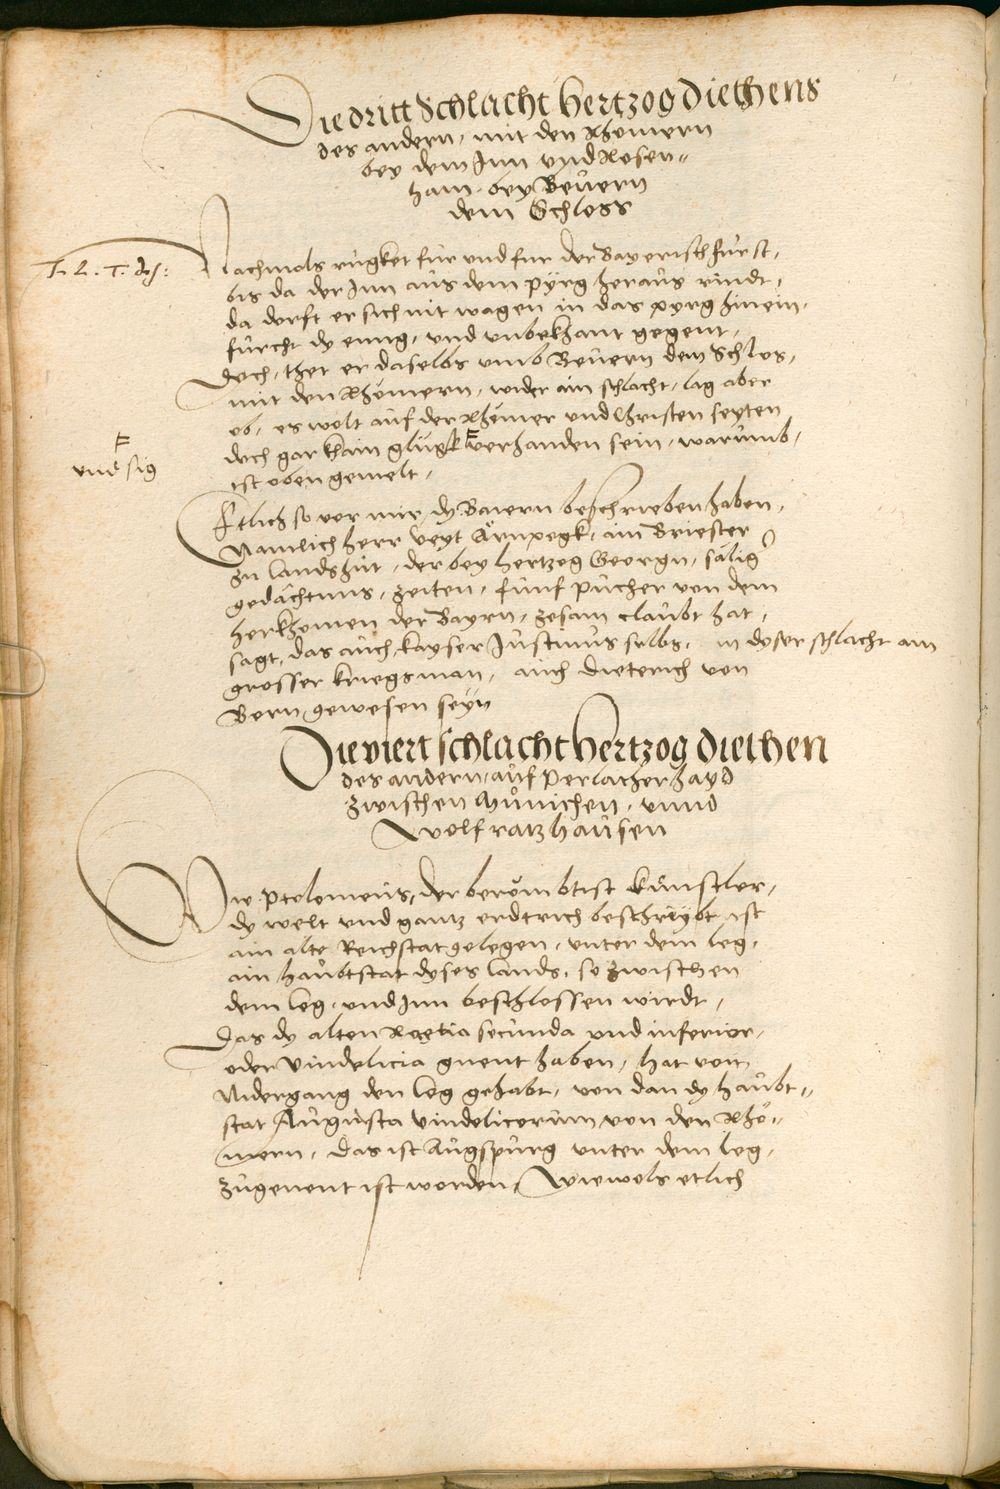 Die dritt Schlacht hertzog Diethens
des andern, mit den Rhömern
bey dem Inn vnd Rosen„
ham. bey Beuern
dem Schloss
Nachmols rugket für vnd fur der Bayerisch fürst,
bis da der Inn aus dem pyrg heraus rindt,
da dorft er sich nit wagen in das pyrg hinein,
furcht dy enng, vnd vnbekhant gegent,
Doch, thet er daselbs vmb Beuern dem Schlos,
mit den Rhömern, wider ain schlacht, lag aber
ob, es wolt auf der Rhömer vnd Christen seyten
doch gar khain glügk F verhanden sein, warumb,
ist oben gemelt,
F
vnd sig
Etlich so vor mir, dy Baiern beschrieben haben,
Namlich herr Veyt Arnpegk, ain Briester
zu Landshut, der bey hertzog Georgn, sälig
gedächtnus, zeiten, fünf pücher von dem
herkhomen der Bayrn, zesam claubt hat,
sagt, das auch kayser Justinus selbs, in dyser schlacht ain
grosser kriegsman, auch Dieterich von
Bern gewesen seyn
Die viert schlacht hertzog Diethen
des andern, auf Perlacher hayd
zwischen Münichen, vnnd
Wolfratzhausen
Wie Ptolomeus, der berömbtist künstler,
dy welt vnd gantz erdtrich beschrybt, ist
ain alte Reichstat gelegen, vnter dem leg,
ain haubtstat dyses lands, so zwischen
dem leg, vnd Inn beschlossen wirdt,
Das dy alten Roetia secunda vnd inferior,
oder Vindelicia gnent haben, hat von
Nidergang den leg gehabt, von dan dy haubt„
stat Augusta Vindelicorum, von den Rhö„
mern, das ist Augspurg vnter dem leg,
zugenent ist worden, Wiewols etlich